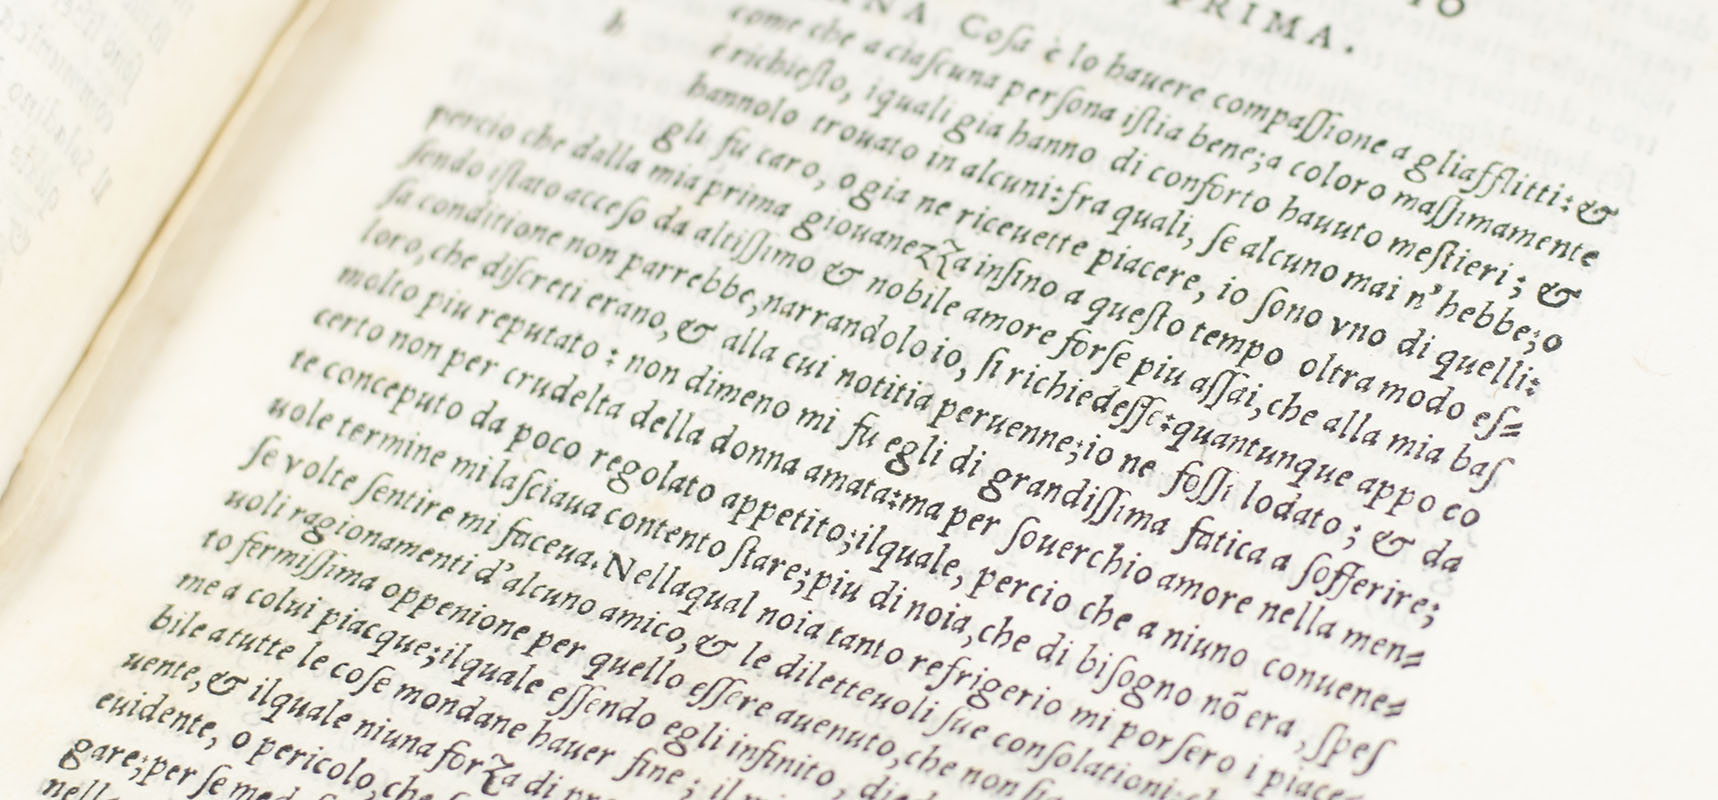 PRIMA.
Coſa è lo hauere compaſſione a gli afflitti: &
come che a ciaſcuna perſona iſtia bene; a coloro maſſimamente
è richieſto, iquali gia hanno di conforto hauuto meſtieri; &
hannolo trouato in alcuni: fra quali, ſe alcuno mai n'hebbe; o
gli fu caro, o gia ne riceuette piacere, io ſono vno di quelli:
percio che dalla mia prima giouanezza inſino a queſto tempo oltra modo eſ=
ſendo iſtato acceſo da altiſſimo & nobile amore forſe piu aſſai, che alla mia baſ
ſa conditione non parrebbe, narrandolo io, ſi richiedeſſe: quantunque appo co
loro, che diſcreti erano, & alla cui notitia peruenne; io ne foſſi lodato; & da
molto piu reputato: non dimeno mi fu egli di grandiſſima fatica a ſofferire;
certo non per crudelta della donna amata: ma per ſouerchio amore nella men=
te conceputo da poco regolato appetito; ilquale, percio che a niuno conuene=
uole termine mi laſciaua contento ſtare; piu di noia, che di biſogno nõ era, ſpeſ
ſe volte ſentire mi faceua. Nellaqual noia tanto refrigerio mi porſero i piace=
uoli ragionamenti d'alcuno amico, & le diletteuoli ſue conſolationi:
to fermiſſima oppenione per quello eſſere auenuto, che non ſia
me a colui piacque; ilquale eſſendo egli infinito,
bile a tutte le coſe mondane hauer fine;
uente, & ilquale niuna forza di
euidente, o pericolo, che
gare; per ſe
nella